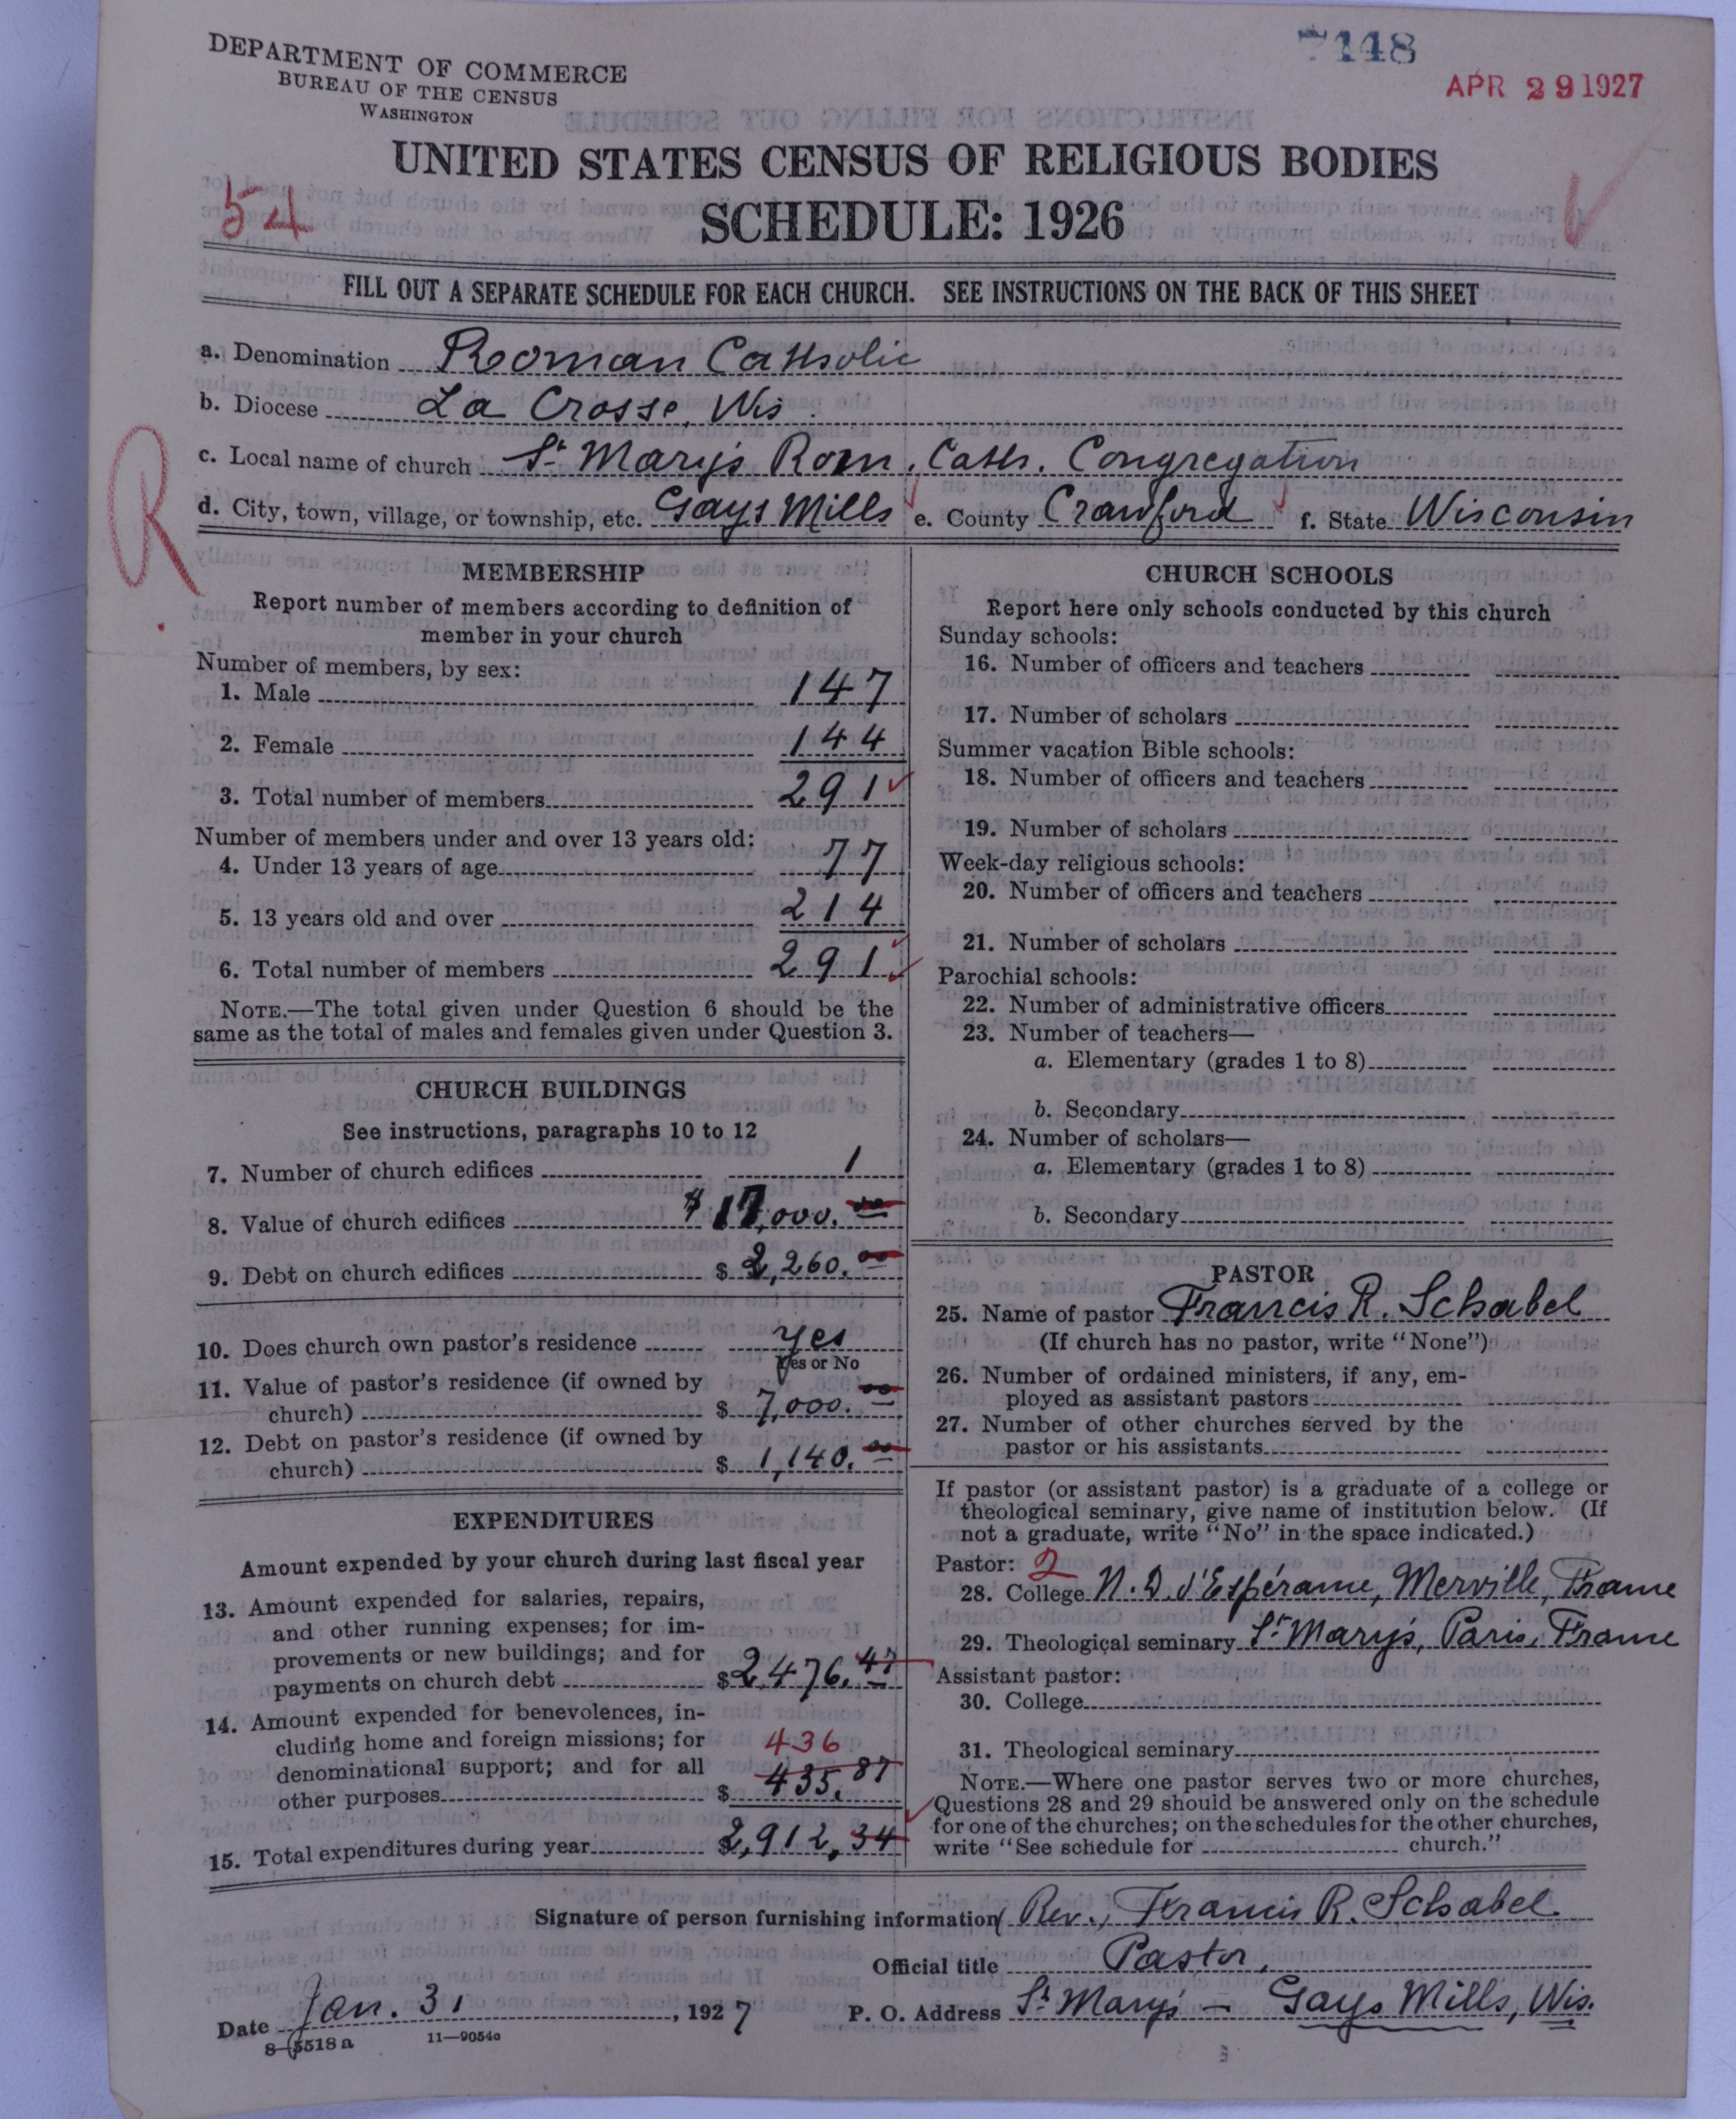 7448
APR 29 1927
DEPARTMENT OF COMMERCE
BUREAU OF THE CENSUS
WASHINGTON
UNITED STATES CENSUS OF RELIGIOUS BODIES
54
SCHEDULE: 1926
FILL OUT A SEPARATE SCHEDULE FOR EACH CHURCH. SEE INSTRUCTIONS ON THE BACK OF THIS SHEET
a. Denomination Rooman Catholic
b. Diocese La Crosse, Wis.
c. Local name of church St Mary's Rom. Cath. Congregation
d. City, town, village, or township, etc. Gays Mills e. County Crawford f. State Wisconsin
R
MEMBERSHIP
Report number of members according to definition of
member in your church
Number of members, by sex:
1. Male 147
2. Female 144
3. Total number of members 291
Number of members under and over 13 years old:
4. Under 13 years of age 77
5. 13 years old and over 214
6. Total number of members 291
NOTE.—The total given under Question 6 should be the
same as the total of males and females given under Question 3.
CHURCH BUILDINGS
See instructions, paragraphs 10 to 12
7. Number of church edifices 1
8. Value of church edifices $17,000.00
9. Debt on church edifices $2,260.00
10. Does church own pastor's residence yes
Yes or No
11. Value of pastor's residence (if owned by
church) $7,000.00
12. Debt on pastor's residence (if owned by
church) $1,140.00
EXPENDITURES
Amount expended by your church during last fiscal year
13. Amount expended for salaries, repairs,
and other running expenses; for im-
provements or new buildings; and for
payments on church debt $2,476.47
14. Amount expended for benevolences, in-
cluding home and foreign missions; for 436
denominational support; and for all
other purposes $435.87
15. Total expenditures during year $2,912,34
CHURCH SCHOOLS
Report here only schools conducted by this church
Sunday schools:
16. Number of officers and teachers
17. Number of scholars
Summer vacation Bible schools:
18. Number of officers and teachers
19. Number of scholars
Week-day religious schools:
20. Number of officers and teachers
21. Number of scholars
Parochial schools:
22. Number of administrative officers
23. Number of teachers—
a. Elementary (grades 1 to 8)
b. Secondary
24. Number of scholars—
a. Elementary (grades 1 to 8)
b. Secondary
PASTOR
25. Name of pastor Francis R. Schabel
(If church has no pastor, write "None")
26. Number of ordained ministers, if any, em-
ployed as assistant pastors
27. Number of other churches served by the
pastor or his assistants
If pastor (or assistant pastor) is a graduate of a college or
theological seminary, give name of institution below. (If
not a graduate, write "No" in the space indicated.)
Pastor: 2
28. College N. D. d'Espérance, Merville, France
29. Theological seminary St Mary's, Paris, France
Assistant pastor:
30. College
31. Theological seminary
NOTE.—Where one pastor serves two or more churches,
Questions 28 and 29 should be answered only on the schedule
for one of the churches; on the schedules for the other churches,
write "See schedule for church."
Signature of person furnishing information Rev., Francis R. Schabel
Official title Pastor,
Date Jan. 31, 1927 P. O. Address St Mary's - Gays Mills, Wis.
8-5518a 11-9054a